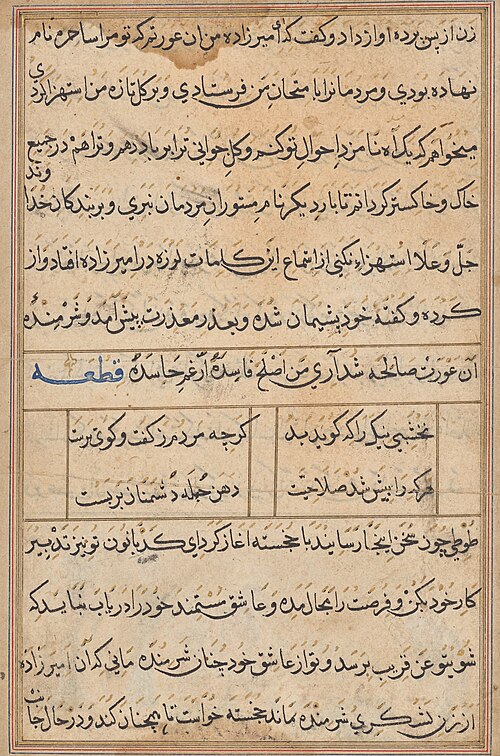 زن از پس پرده اواز داد و کفت که ای امیرزاده من ان عورتم که تو مرا ساحره نام
نهاده بودی و مردمانرا بامتحان من فرستادی و بر کل تازه من استهزا کردی
میخواهم که یک آه نامزد احوال تو کنم و کل جوانی ترا بر باد دهم و ترا هم در جمیع
خاک و خاکستر کردانم تا بار دیکر نام مستوران مردمان نبری و بر بندکان خدا
جلّ و علا استهزاء نکنی از استماع این کلمات لرزه در امیرزاده افتاد و از
کرده و کفته خود پشیمان شده و بعذر معذرت پیش آمد و شرمنده
آن عورت صالحه شد آری من اصلح فاسده ارغم حاسده قطعه
نخشبی نیک را که کوید بد
کرچه مردم ز کفت و کوی برست
هرکه را بیش شد صلاحیّت
دهن جمله دشمنان بربست
طوطی چون سخن اینجا رسانید با خجسته اغاز کرد ای کدبانو تو نیز تدبیر
کار خود بکن و فرصت را مجال مده و عاشق مستمند خود را دریاب نباید که
شوی تو عن قریب برسد و تو از عاشق خود چنان شرمنده مانی که آن امیرزاده
از زن لشکری شرمنده ماند خجسته خواست تا همچنان کند و در حال جانب